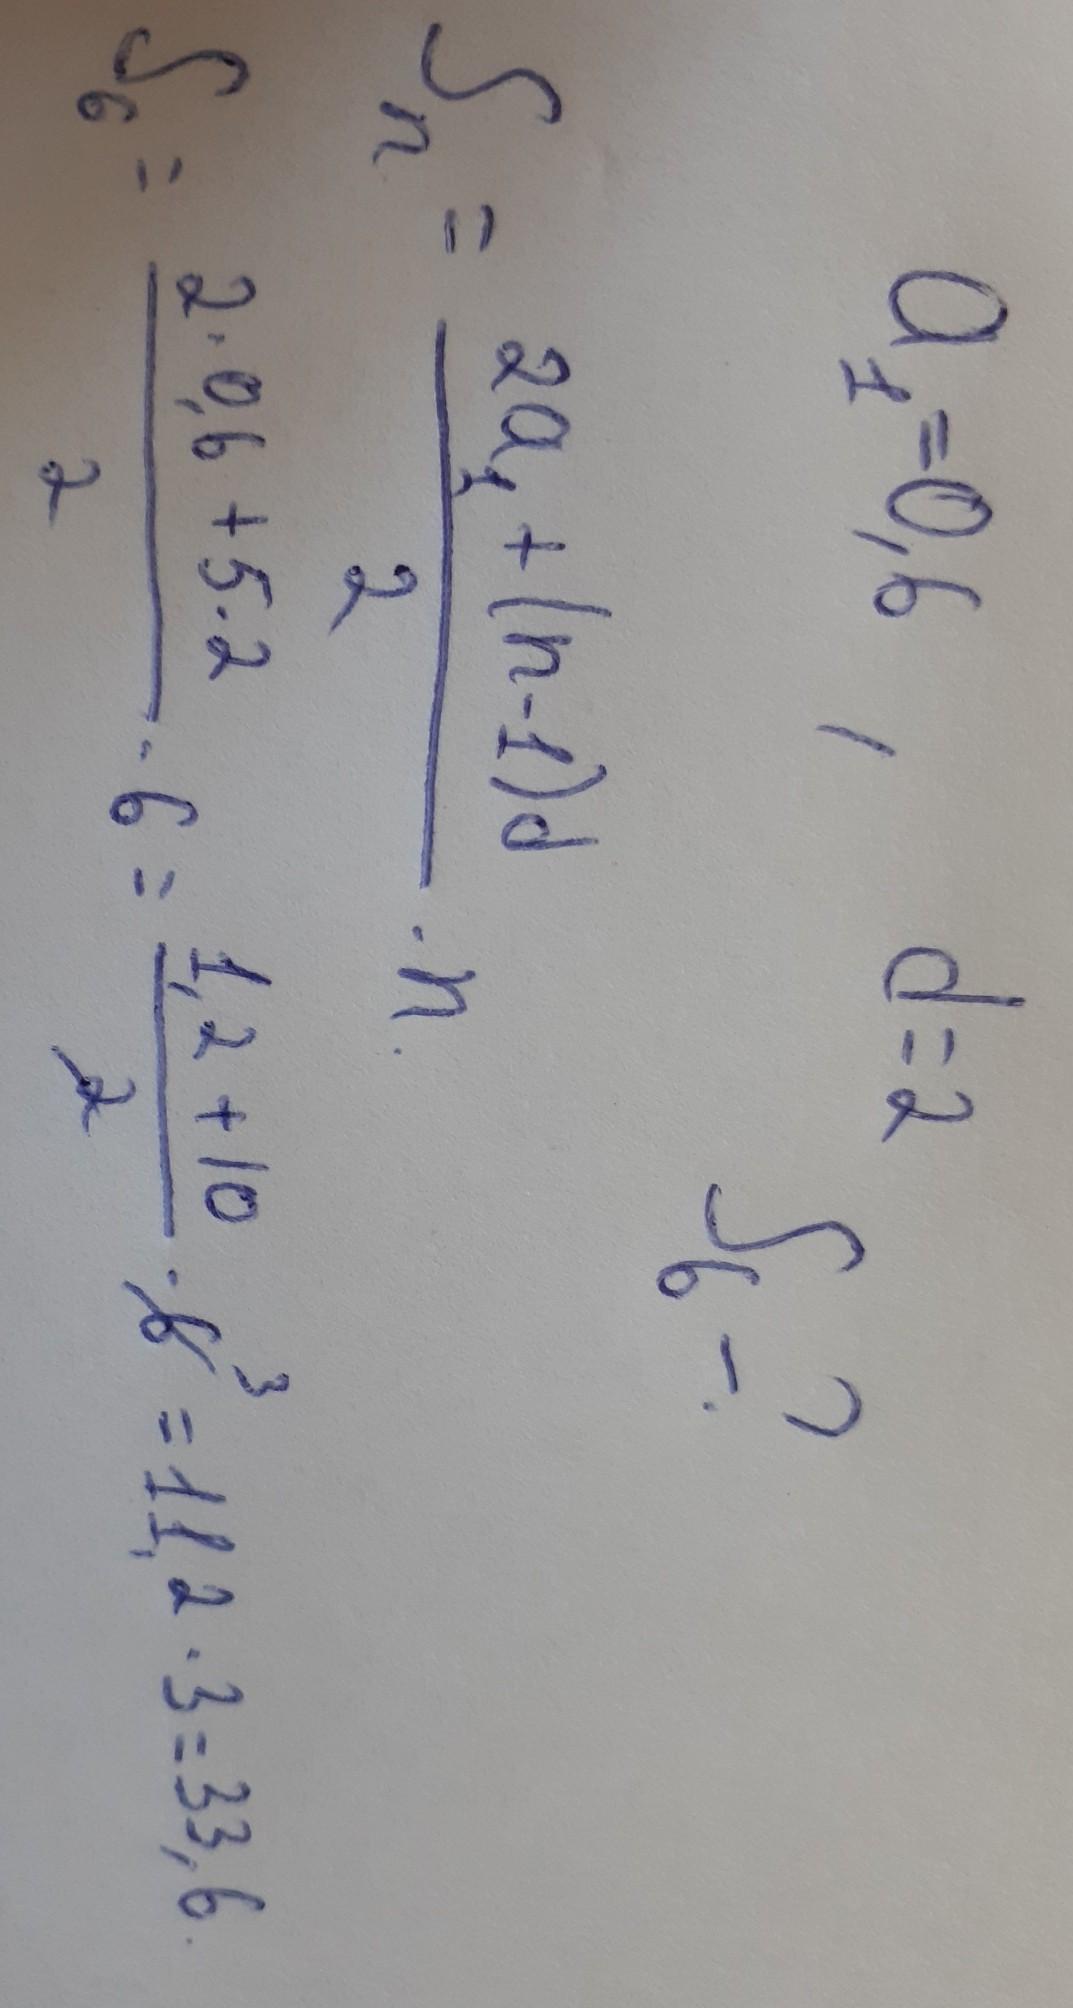 a₁=0,6, d=2
S₆ - ?
Sₙ = (2a₁+(n-1)d)/2 · n.
S₆ = (2·0,6+5·2)/2 · 6 = (1,2+10)/2 · 6³ = 11,2·3=33,6.